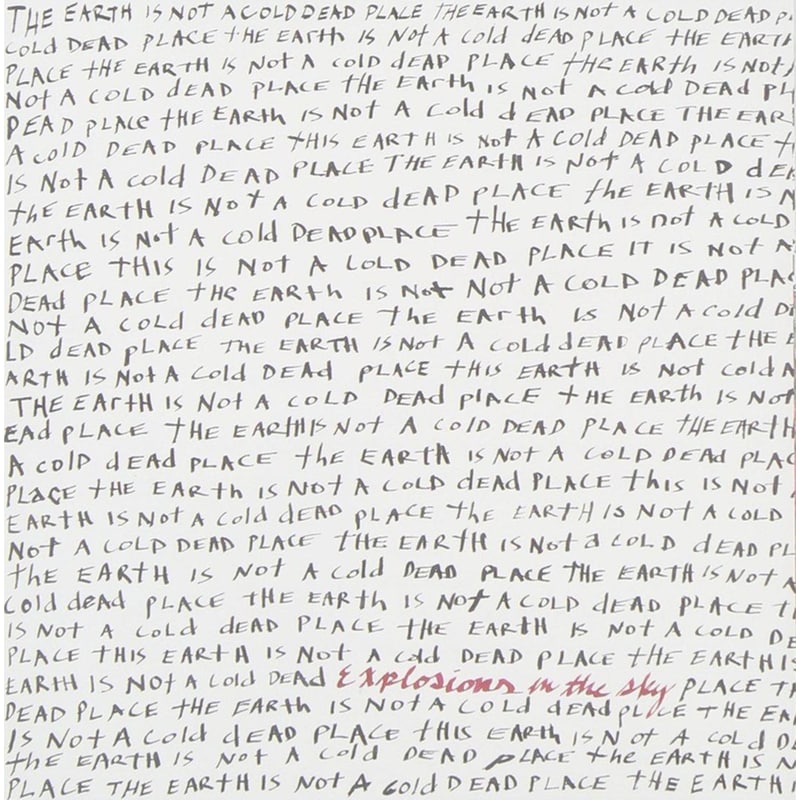 THE EARTH IS NOT A COLD DEAD PLACE THE EARTH IS NOT A COLD DEAD P
COLD DEAD PLACE tHE EARth IS Not A cold dEAD PLACE tHE EARTH
PLACE tHE EARTH IS Not A cold dEAD PLACE tHE EARth IS NOT
Not A COLD DEAD PLACE tHE EArth is Not A cold DEAD PL
DEAD PLACe tHE EARth IS NOT A Cold dEAD PLACE THE EAR
A colD DEAD PLACE tHIS EARTH IS Not A COld DEAD PLACE t
IS Not A cold DeAD PLACE THE EARTH IS Not A COLD dEA
thE EARTH IS Not A COLD dEAD PLACE thE EARTH IS N
EArth IS Not A cold DEAD PLACE tHE EARth IS not A COLD
PLACE THIS IS Not A COLD DEAD PLACE IT IS NOT A
DEAd PLACE tHe EARth IS Not Not A COLD DEAD PLAC
Not A COLd dEAD PLACE thE EArth is Not A cold D
LD dEAD pLACE THE EARTH IS Not A cold dEAD PLACE tHE E
ARTH IS Not A Cold DEAd PLACE tHIS EARTH IS Not cold A
THE EARtH IS Not A COLD DEAD plACE tHE EARth IS Not
EAd PLACE THE EARTH IS Not A COLD DEAD PLACE tHE EARTH
A colD dEAd PLACE thE EARTH IS NOT A COLD DEAd PLAC
PLACE tHE EARth IS NOT A COLD dEAd PLACE this IS Not
EARTH IS Not A cold dEAD PLACE thE EARTH IS NOt A COLD
Not A COLD DEAD PLACE tHE EARTH IS Not a COLD dEAD PL
thE EARTH IS NOT A cold DEAD PLACE THE EARTH IS Not A
Cold deAd PLACE tHE EARth IS NOT A COLD dEAD PLACE t
IS Not A cold dEAD PLACE tHE EARtH IS Not A COLD DE
PLACE THIS EARTH IS Not A cold DEAD PLACE tHE EARTH IS
EARTH IS NOt A COLD DEAd Explosions in the Sky PLACE T
DEAD PLACE tHE EARth IS Not A COLD dEAD PLACE tHE EA
IS NOt A Cold dEAD PLACE tHIS EARth IS Not A COLd D
thE EARTH IS NOT A COld DEAD PLACE the EARTH IS N
PLACE THE EARTH IS NOt A cold DEAD PLACE tHE EARTH